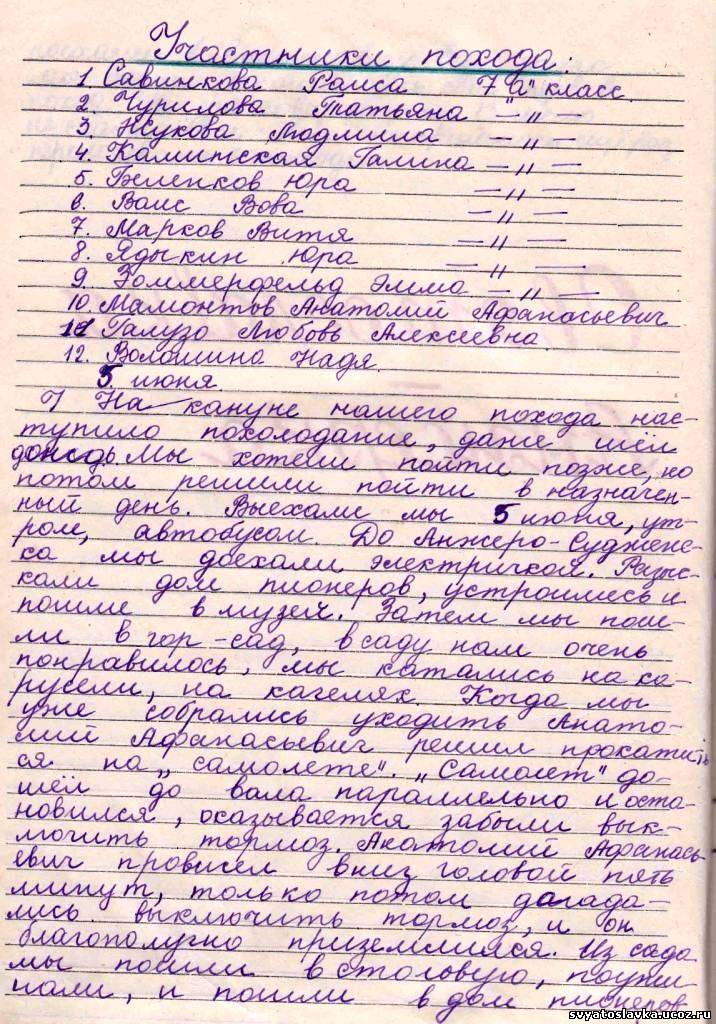 Участники похода:
1 Савинкова Раиса 7 "а" класс.
2. Чурилова Татьяна — " —
3 Жукова Людмила — " —
4. Каминская Галина — " —
5. Беленков Юра — " —
6. Ваис Вова — " —
7. Марков Витя — " —
8. Ядыкин Юра — " —
9. Зоммерфельд Эмма — " —
10 Мамонтов Анатолий Афанасьевич
11 Галузо Любовь Алексеевна.
12. Волошина Надя.
5 июня.
На кануне нашего похода нас-
тупило похолодание, даже шёл
дождь. Мы хотели пойти позже, но
потом решили пойти в назначен-
ный день. Выехали мы 5 июня, ут-
ром, автобусом. До Анжеро-Судженс-
ка мы доехали электричкой. Разыс-
кали дом пионеров, устроились и
пошли в музей. Затем мы пош-
ли в гор-сад, в саду нам очень
понравилось, мы катались на ка-
русели, на качелях. Когда мы
уже собрались уходить Анато-
лий Афанасьевич решил прокатить
ся на „самолете". „Самолет" до-
шёл до вала параллельно и оста-
новился, оказывается забыли вык-
лючить тормоз. Анатолий Афанась
евич провисел вниз головой пять
минут, только потом дагада-
лись выключить тормоз, и он
благополучно приземлился. Из сада
мы пошли в столовую, поужи
нали, и пошли в дом пионеров
svyatoslavka.ucoz.ru